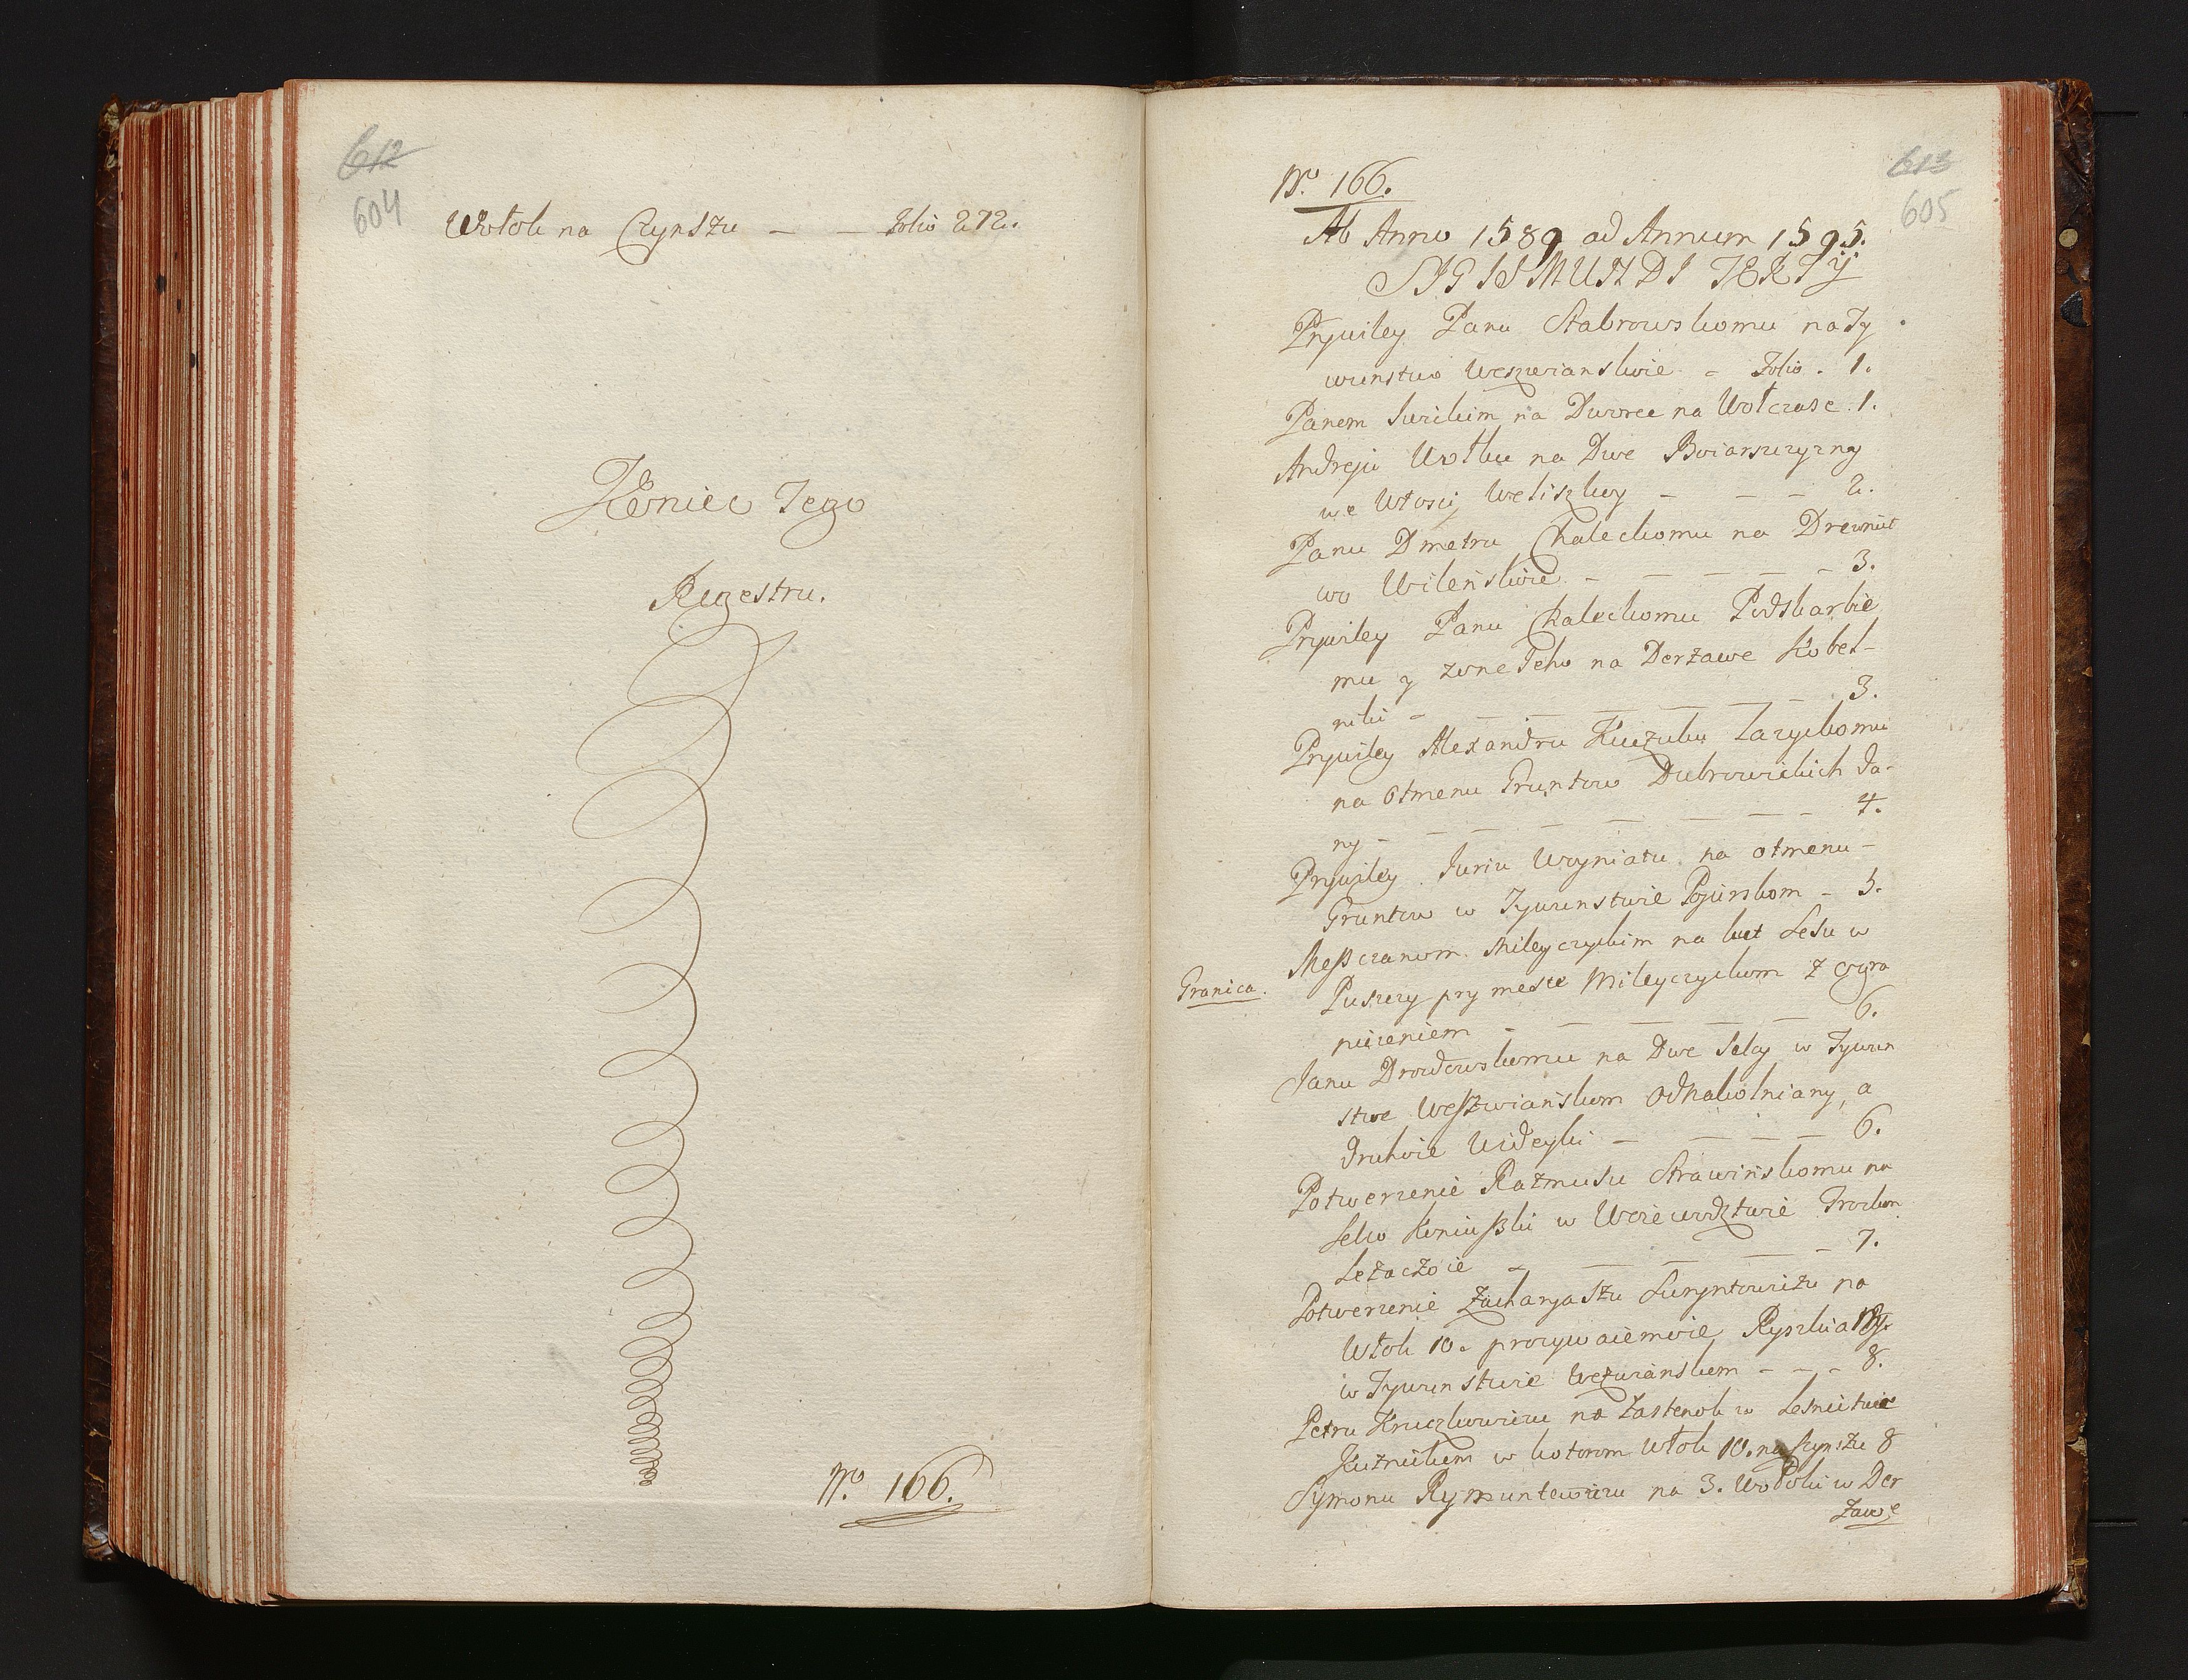 612
604
Wołok na Czynszu - - Folio 272.
Koniec Tego
Rejestru.
No. 166.
613
605
No. 166.
Ab Anno 1589 ad Annum 1595.
SIGISMUNDI TERTY
Prywiley Panu Stabrowskomu na Ty
wunstwo Weszwianskoie - Folio. 1.
Panem Jurikim na Dworec na Wołczasc. 1.
Andreju Wołku na Dwe Boiarszczyzny
we Włosij Weliszkoy - - - 2.
Panu Dmetru Chaleckomu na Drewnict
wo Wilenskoie - - - - - 3.
Prywiley Panu Chaleckomu Podskarbie
mu y zone Jeho na Derżawe Kobel-
niki - - - - - - - 3.
Prywiley Alexandru Zaryckomu
na Otmenu Gruntow Dubrowickich da-
ny - - - - - - - 4.
Prywiley Juriu Woyniatu na otmenu -
Gruntow w Tywunstwie Pojurskom - 5.
Meßczanom Mileyczyckim na kut Lesu w
Granica.
Puszczy pry mescie Mileyczyckom z ogra
niczeniem - - - - - 6.
Janu Drowdowskomu na Dwe Selcy w Tywun
stwe Weszwianskom Odna Wolniany, a
druhoie Wideyki - - - - 6.
Potwerzenie Razmusu Strawinskomu na
Selco Koniußki w Woiewodztwie Trockom
Leżaczoie - - - - - 7.
Potwerzenie Zacharyaszu Luryntowiczu na
Włok 10. prozywaiemoie Ryszkiany
w Tywunstwie Weszwianskom - - - 8.
Petru Kruczkowiczu na Zastenok w Lesnictwie
w kotorom Włok 10. na Czynszu 8
Symonu Rymuntowiczu na 3. Wołoki w Der
żawe